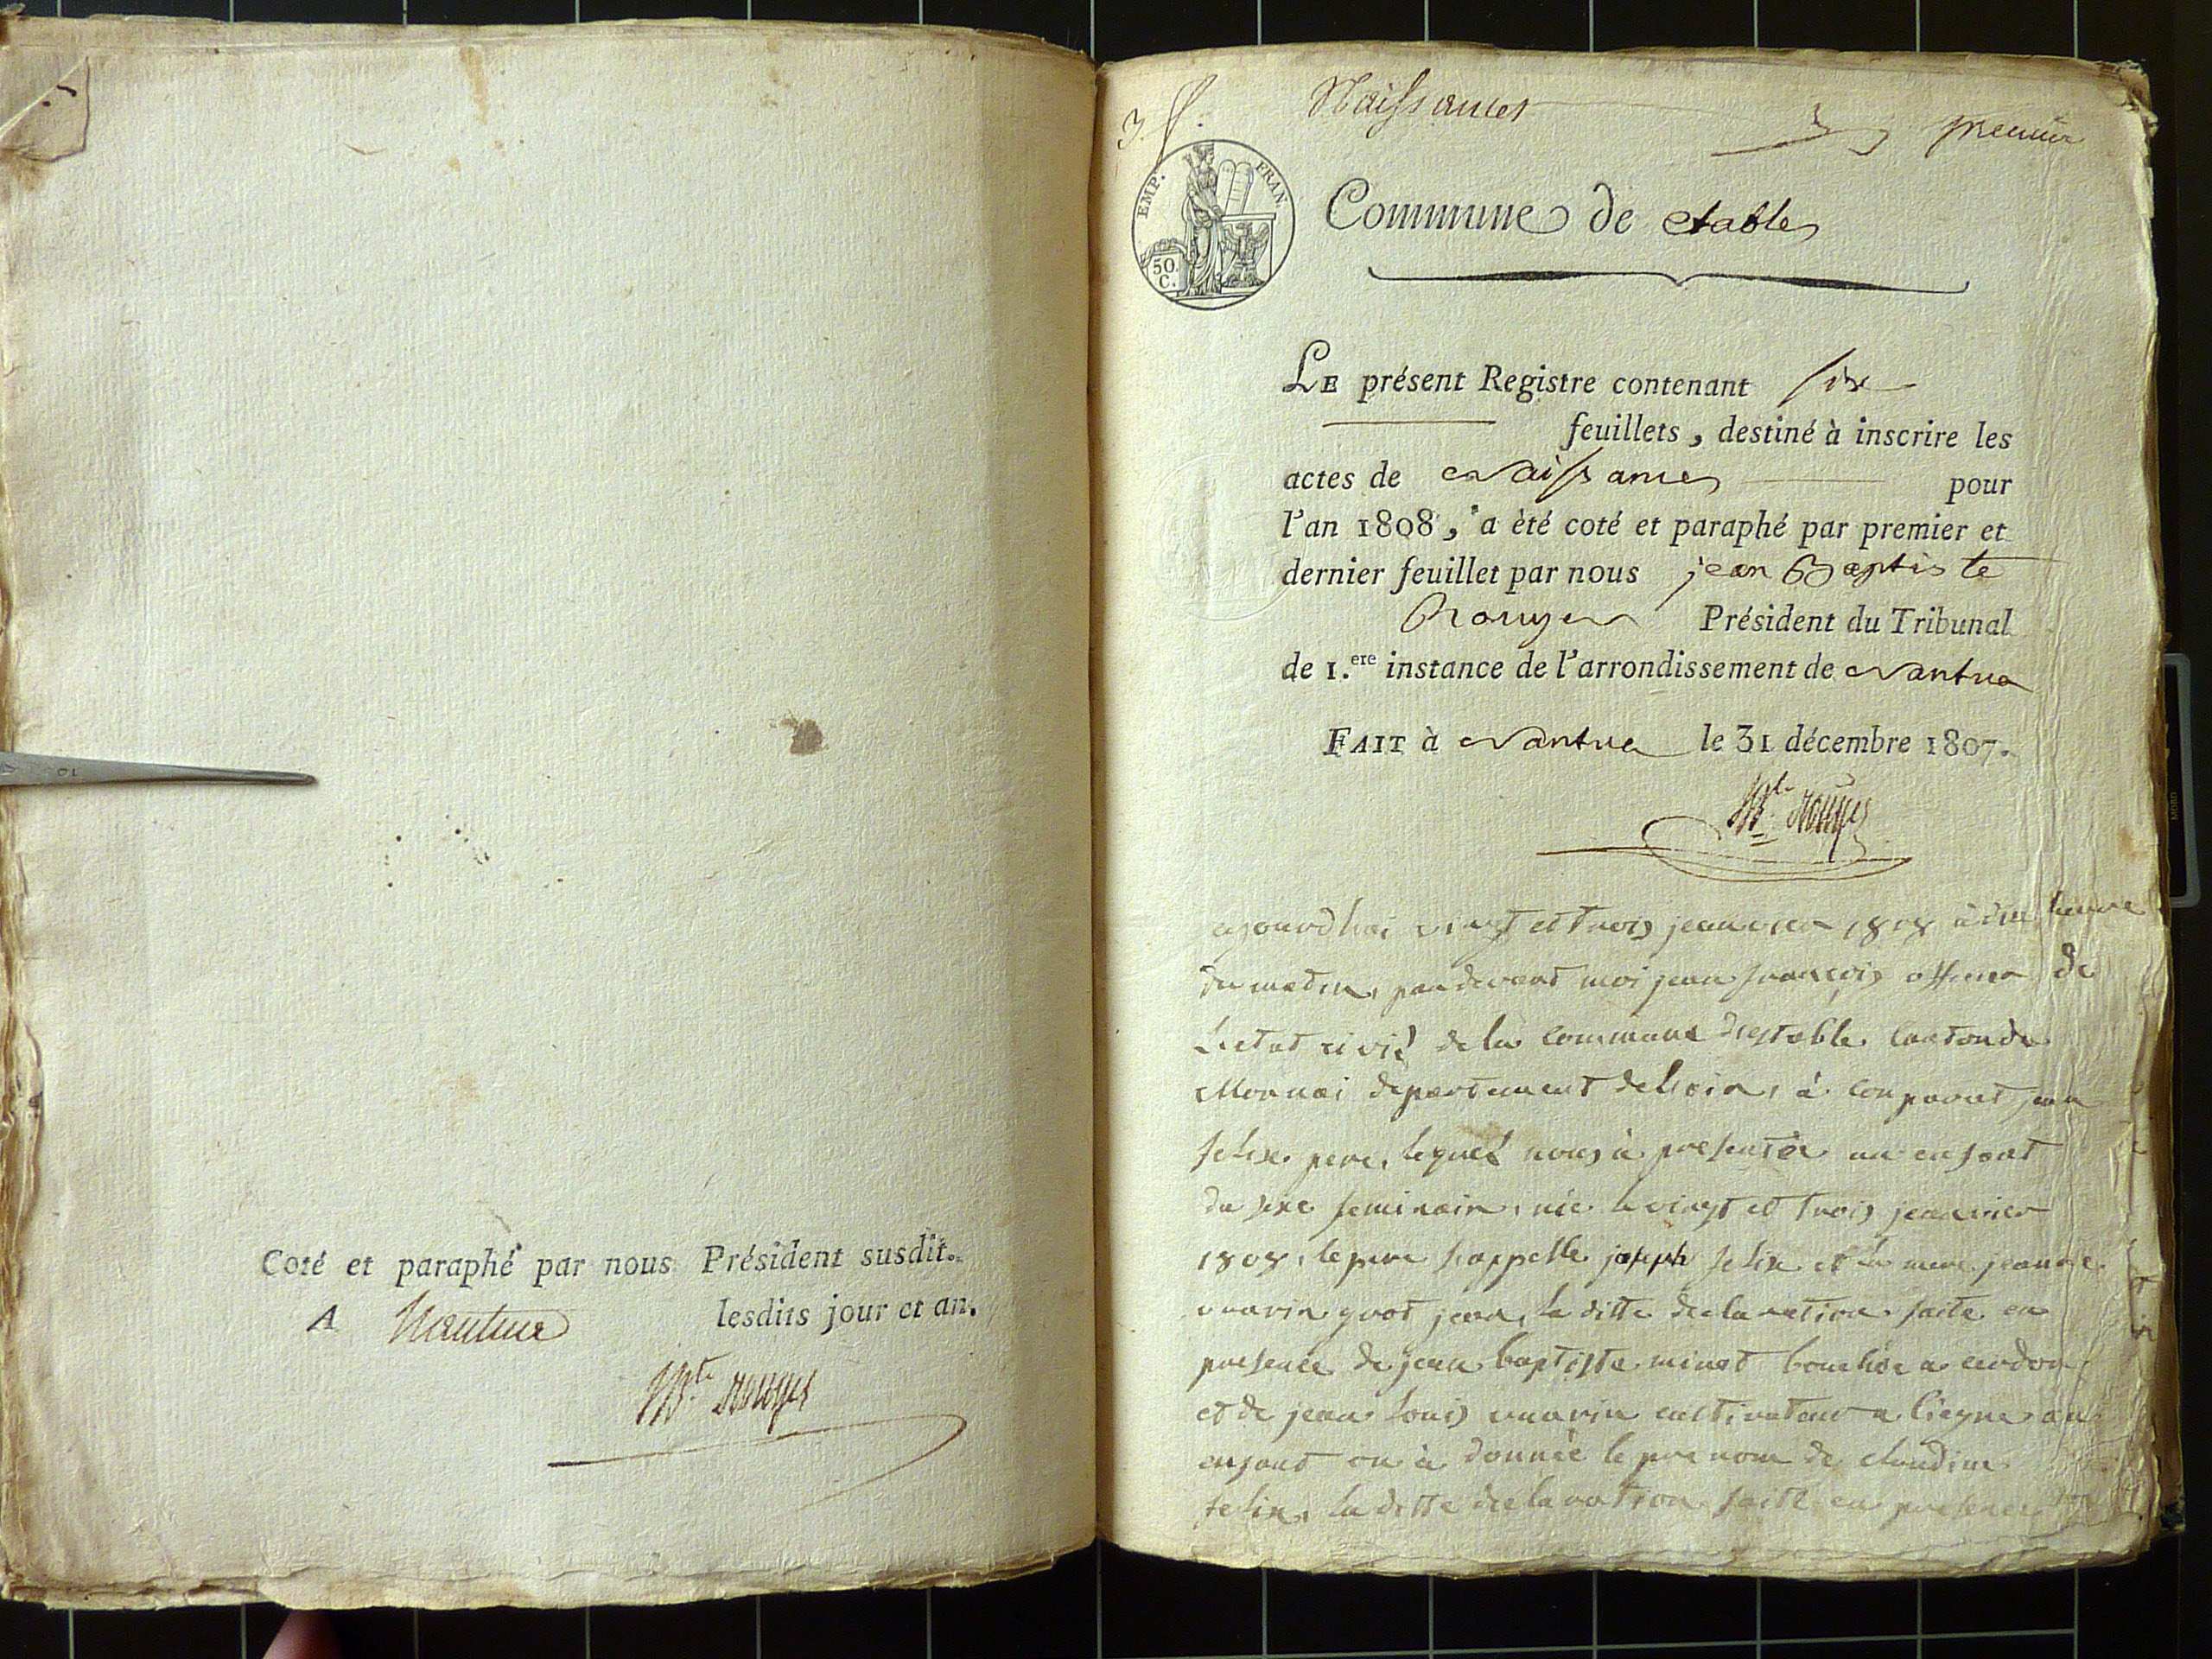 Coté et paraphé par nous Président susdit.
A Nantua lesdits jour et an.
JBte Rouyer
3 f.
Naissances
premier
EMP. FRAN.
50. C.
Commune de etables
LE présent Registre contenant six
feuillets, destiné à inscrire les
actes de Naissances pour
l'an 1808, a èté coté et paraphé par premier et
dernier feuillet par nous jean Baptiste
Rouyer Président du Tribunal
de 1.ere instance de l'arrondissement de Nantua
FAIT à Nantua le 31 décembre 1807.
JBte Rouyer
ajourd hui vingt et trois jeanvier 1808 à dix heure
du matin, pardevant moi jean françois officier de
L'etat civil de la commune d'estable canton de
département de l'ain, à comparut jean
felix pere, lequel nous à presentée un enfant
du sexe feminain, née le vingt et trois jeanvier
1808, le pere s'appelle joseph felix et la mere jeanne
jean, la ditte declaration faite en
presence de jean baptiste minet bouchée a cerdon
et de jean louis cultivateur a au
enfant on à donnée le pre nom de claudine
felix, la ditte declaration faite en presence